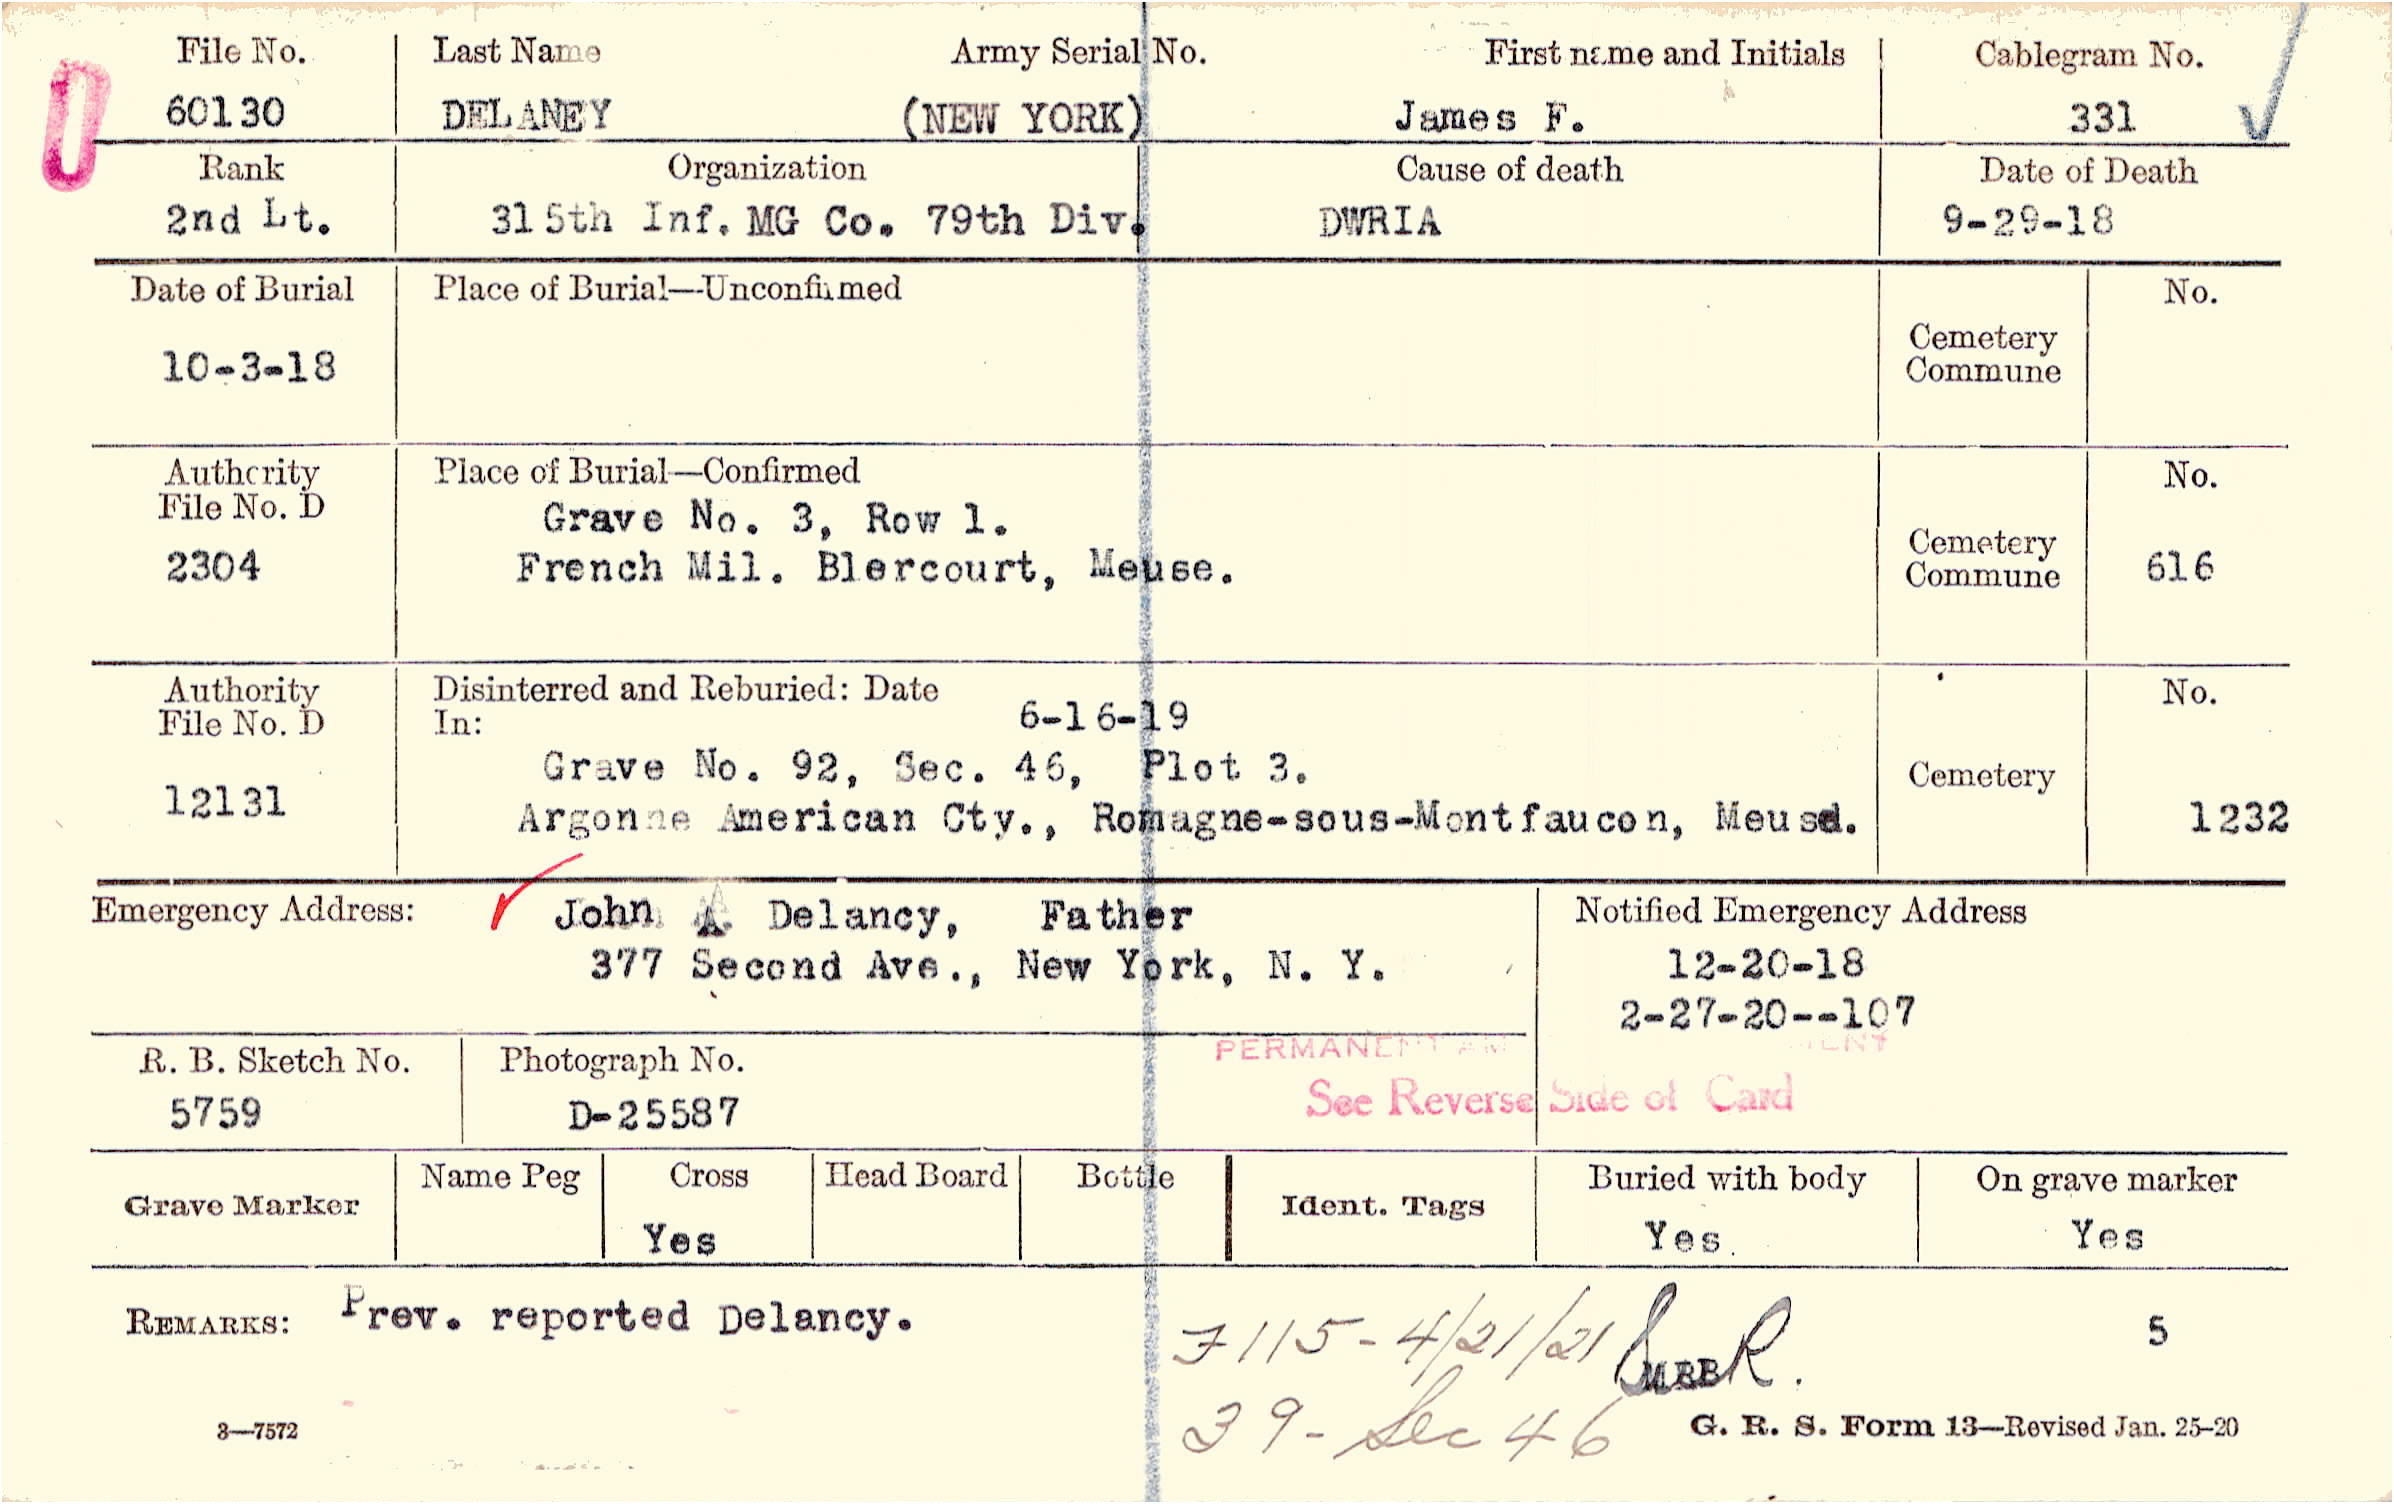 File No. Last Name Army Serial No. First name and Initials Cablegram No.
60130 DELANEY (NEW YORK) James F. 331
Rank Organization Cause of death Date of Death
2nd Lt. 315th Inf. MG Co. 79th Div. DWRIA 9-29-18
Date of Burial Place of Burial—Unconfirmed No.
10-3-18 Cemetery
Commune
Authority Place of Burial—Confirmed No.
File No. D Grave No. 3, Row 1. Cemetery
2304 French Mil. Blercourt, Meuse. Commune 616
Authority Disinterred and Reburied: Date No.
File No. D In: 6-16-19
Grave No. 92, Sec. 46, Plot 3. Cemetery
12131 Argonne American Cty., Romagne-sous-Montfaucon, Meuse. 1232
Emergency Address: John A. Delancy, Father Notified Emergency Address
377 Second Ave., New York, N. Y. 12-20-18
2-27-20--107
R. B. Sketch No. Photograph No. PERMANENT
5759 D-25587 See Reverse Side of Card
Grave Marker Name Peg Cross Head Board Bottle Ident. Tags Buried with body On grave marker
Yes Yes Yes
REMARKS: Prev. reported Delancy. 5
7115-4/21/21
39-Sec 46
3—7572 G. R. S. Form 13—Revised Jan. 25-20